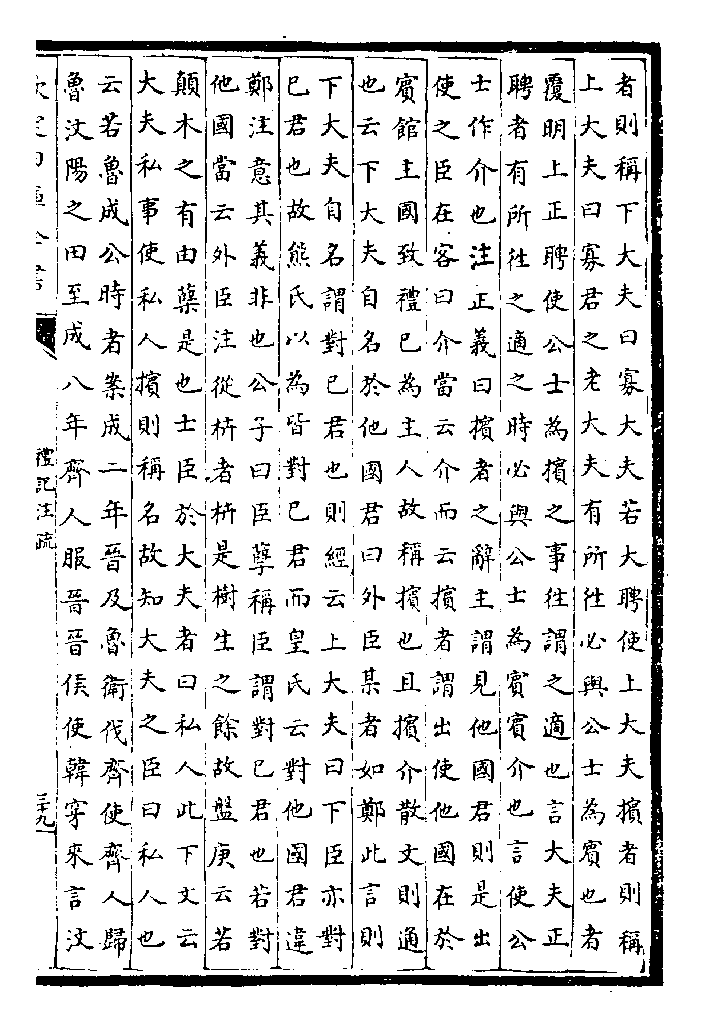 者則稱下大夫曰寡大夫若大聘使上大夫擯者則稱
上大夫曰寡君之老大夫有所徃必與公士為賓也者
覆明上正聘使公士為擯之事徃謂之適也言大夫正
聘者有所徃之適之時必與公士為賓賓介也言使公
士作介也注正義曰擯者之辭主謂見他國君則是出
使之臣在客曰介當云介而云擯者謂出使他國在於
賓館主國致禮已為主人故稱擯也且擯介散文則通
也云下大夫自名於他國君曰外臣某者如鄭此言則
下大夫自名謂對已君也則經云上大夫曰下臣亦對
已君也故熊氏以為皆對已君而皇氏云對他國君違
鄭注意其義非也公子曰臣孽稱臣謂對已君也若對
他國當云外臣注從枿者枿是樹生之餘故盤庚云若
顛木之有由蘖是也士臣於大夫者曰私人此下文云
大夫私事使私人擯則稱名故知大夫之臣曰私人也
云若魯成公時者案成二年晉及魯衛伐齊使齊人歸
魯汶陽之田至成八年齊人服晉晉侯使韓穿來言汶
禮記注疏
三十九